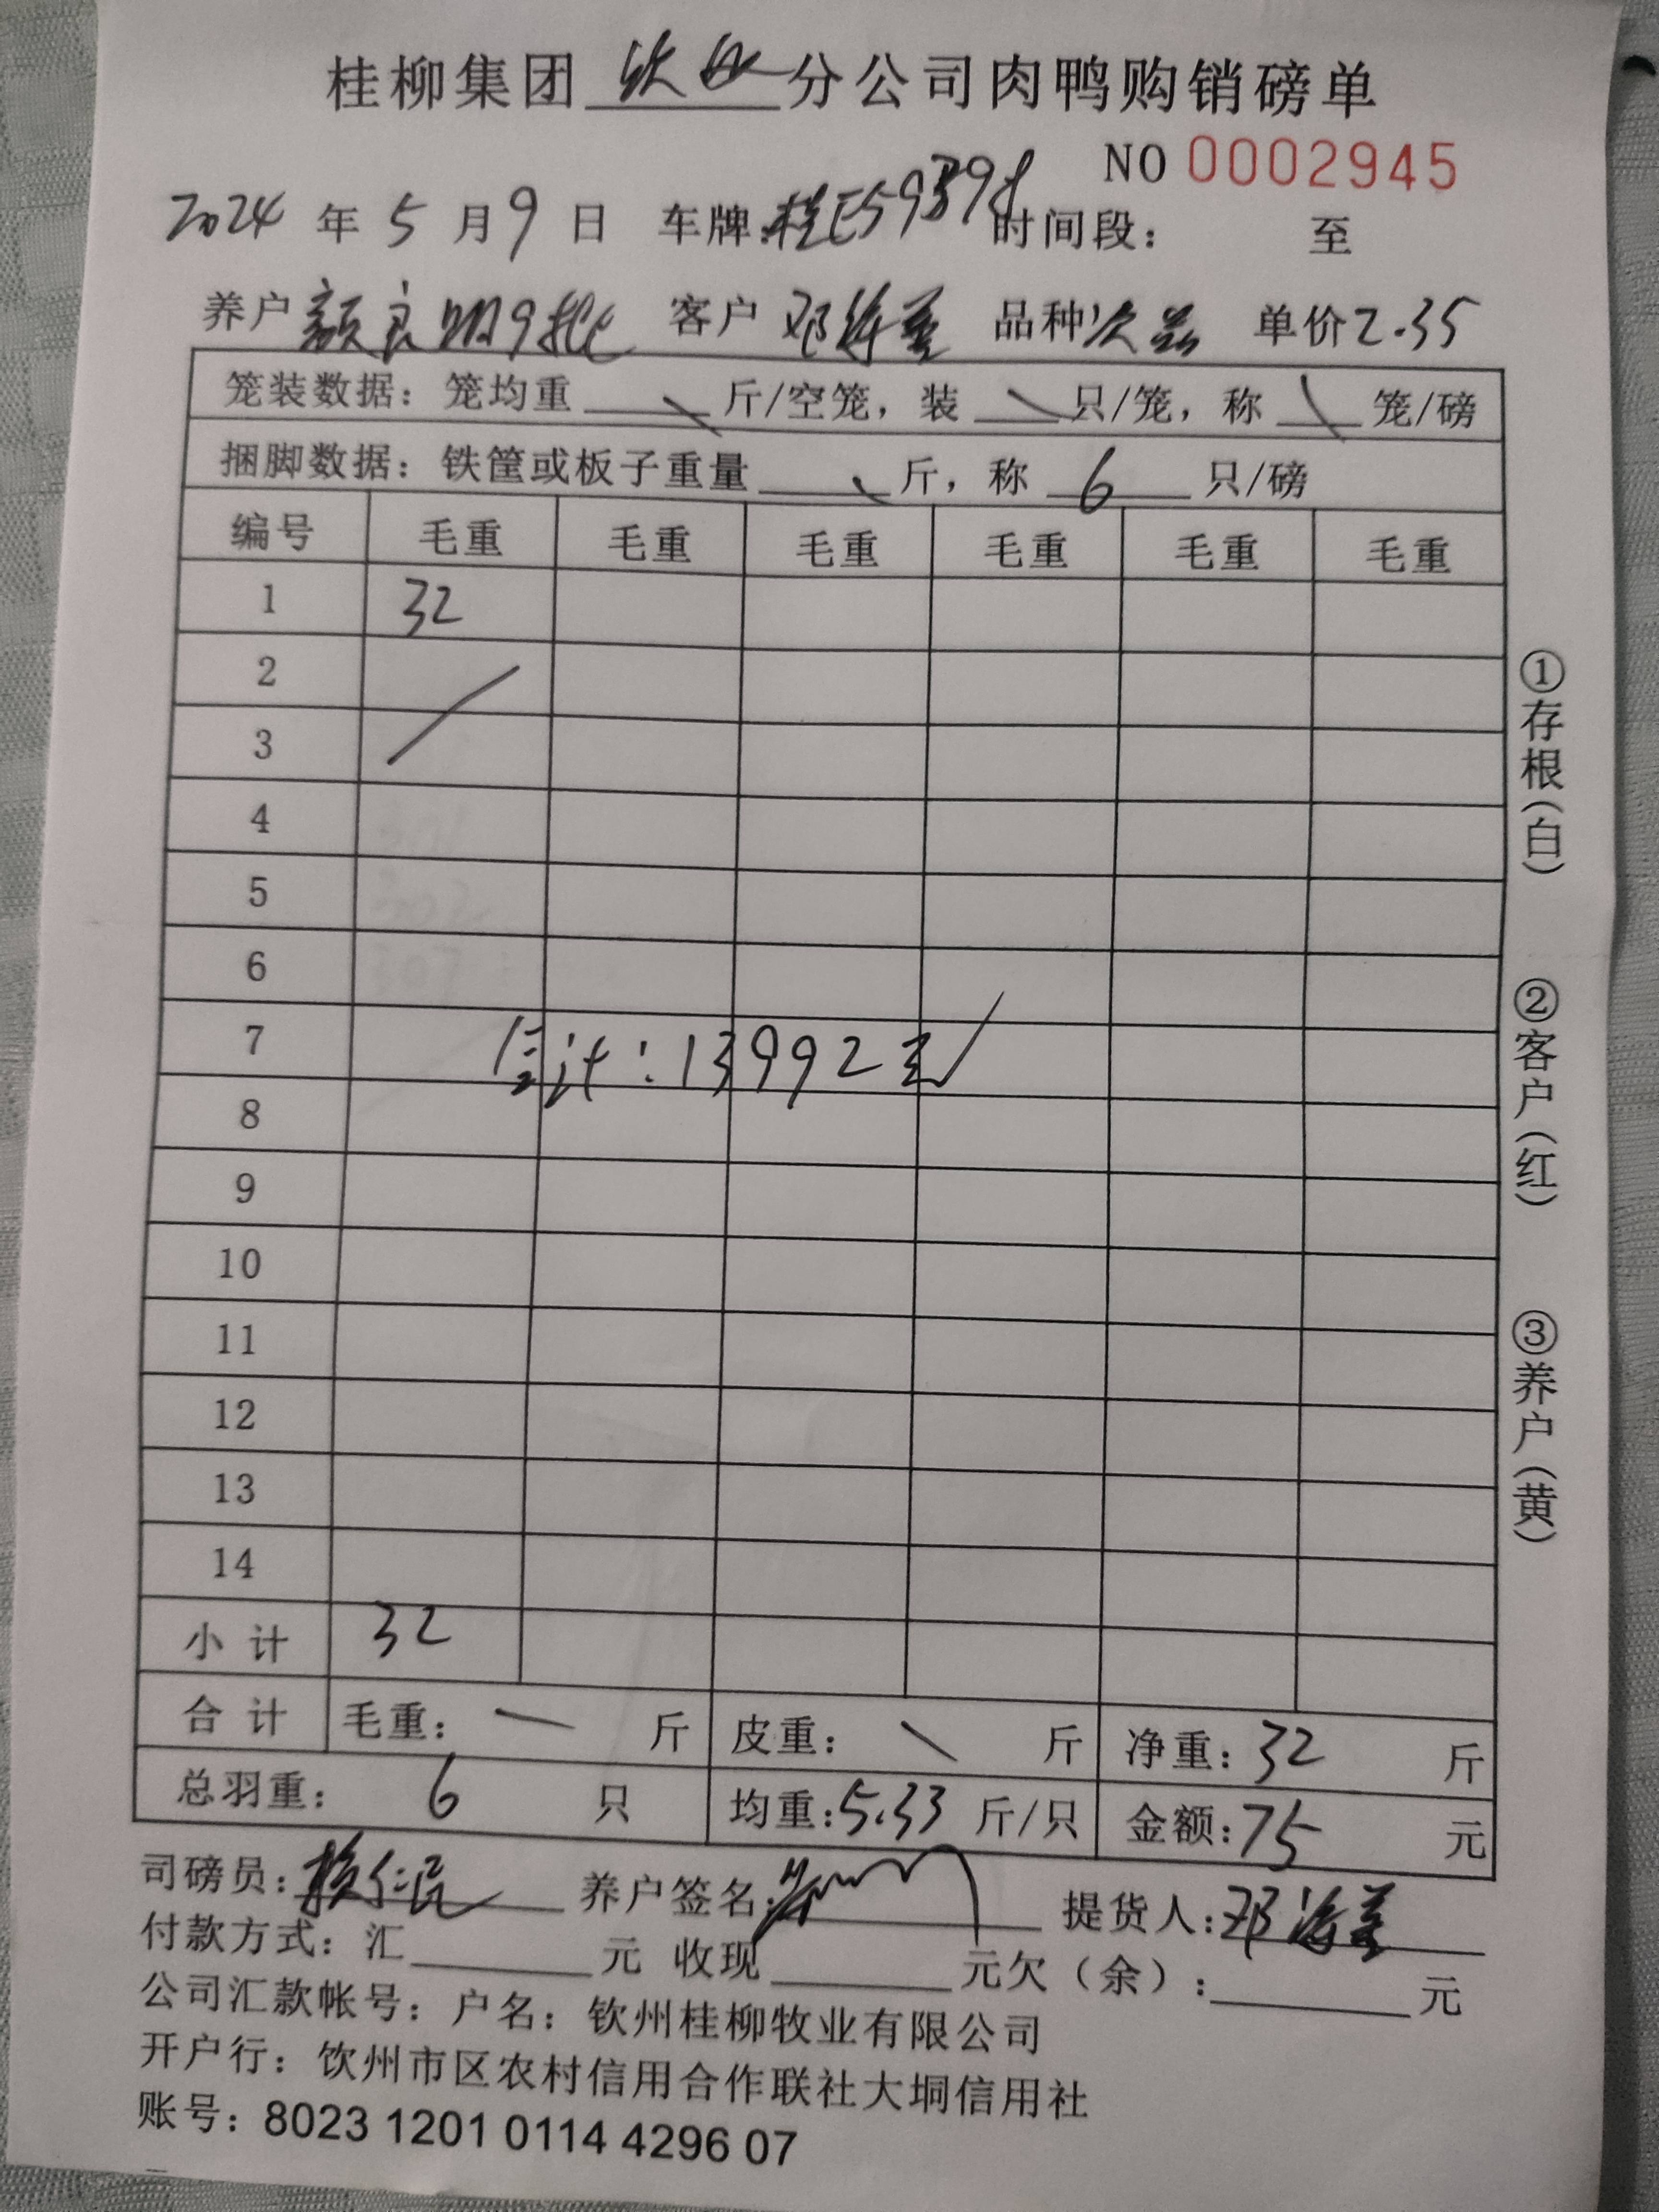 桂柳集团 钦州 分公司肉鸭购销磅单
NO 0002945
2024 年 5 月 9 日 车牌: 时间段: 至
养户 颜良明9批 客户 邓海 品种 次品 单价 2.35
笼装数据: 笼均重 斤/空笼, 装 只/笼, 称 笼/磅
捆脚数据: 铁筐或板子重量 斤, 称 6 只/磅
编号 毛重 毛重 毛重 毛重 毛重 毛重
1 32
2
3
4
5
6
7 合计: 13992元
8
9
10
11
12
13
14
小计 32
合计 毛重: 斤 皮重: 斤 净重: 32 斤
总羽重: 6 只 均重: 5.33 斤/只 金额: 75 元
司磅员: 养户签名: 提货人: 邓海
付款方式: 汇 元 收现 元欠(余): 元
公司汇款帐号: 户名: 钦州桂柳牧业有限公司
开户行: 钦州市区农村信用合作联社大垌信用社
账号: 8023 1201 0114 4296 07
①存根(白)
②客户(红)
③养户(黄)